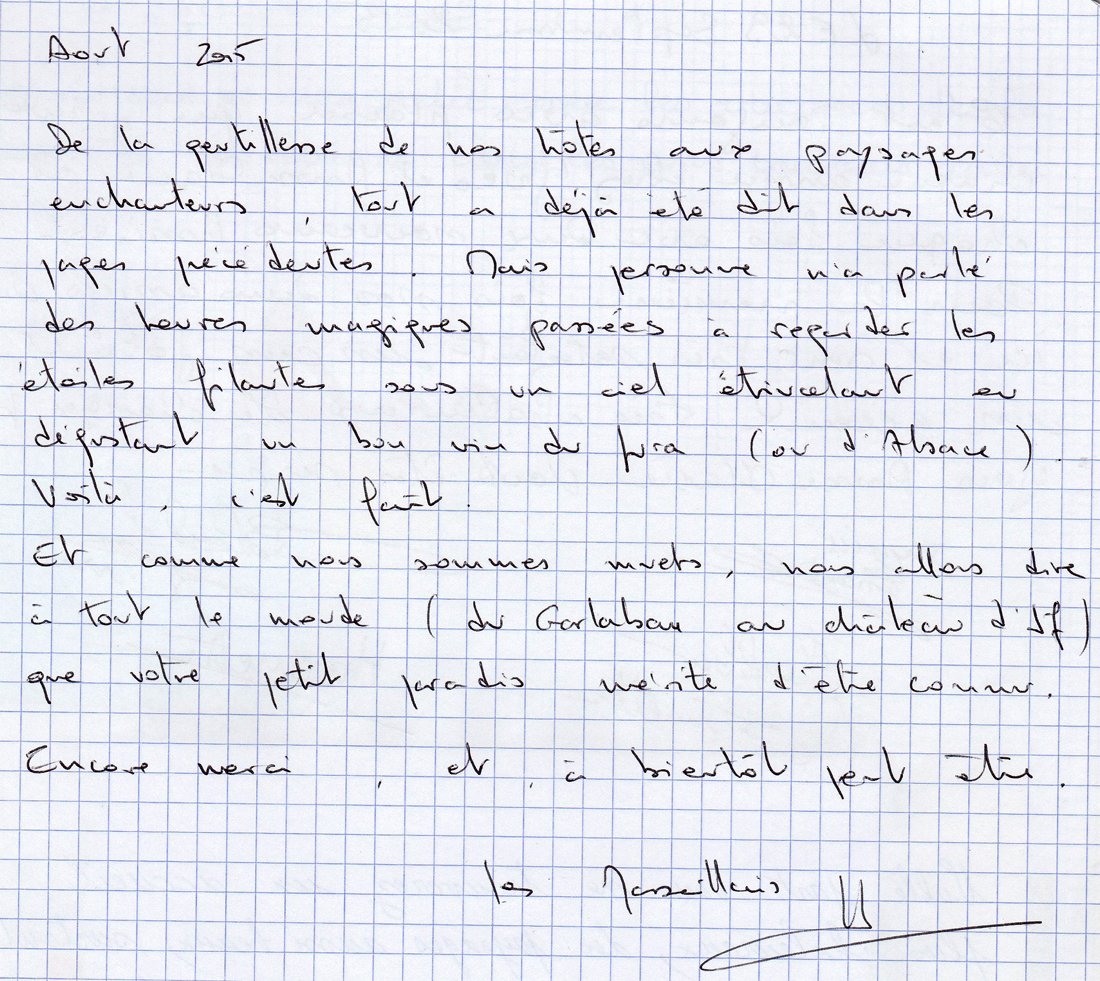 Aout 2015
De la gentillesse de nos hôtes aux paysages
enchanteurs, tout a déjà été dit dans les
pages précédentes. Mais personne n'a parlé
des heures magiques passées à regarder les
étoiles filantes sous un ciel étincelant en
dégustant un bon vin du Jura (ou d'Alsace).
Voilà, c'est fait.
Et comme nous sommes muets, nous allons dire
à tout le monde (du Garlaban au château d'If)
que votre petit paradis mérite d'être connu.
Encore merci, et, à bientôt peut être.
les Marseillais